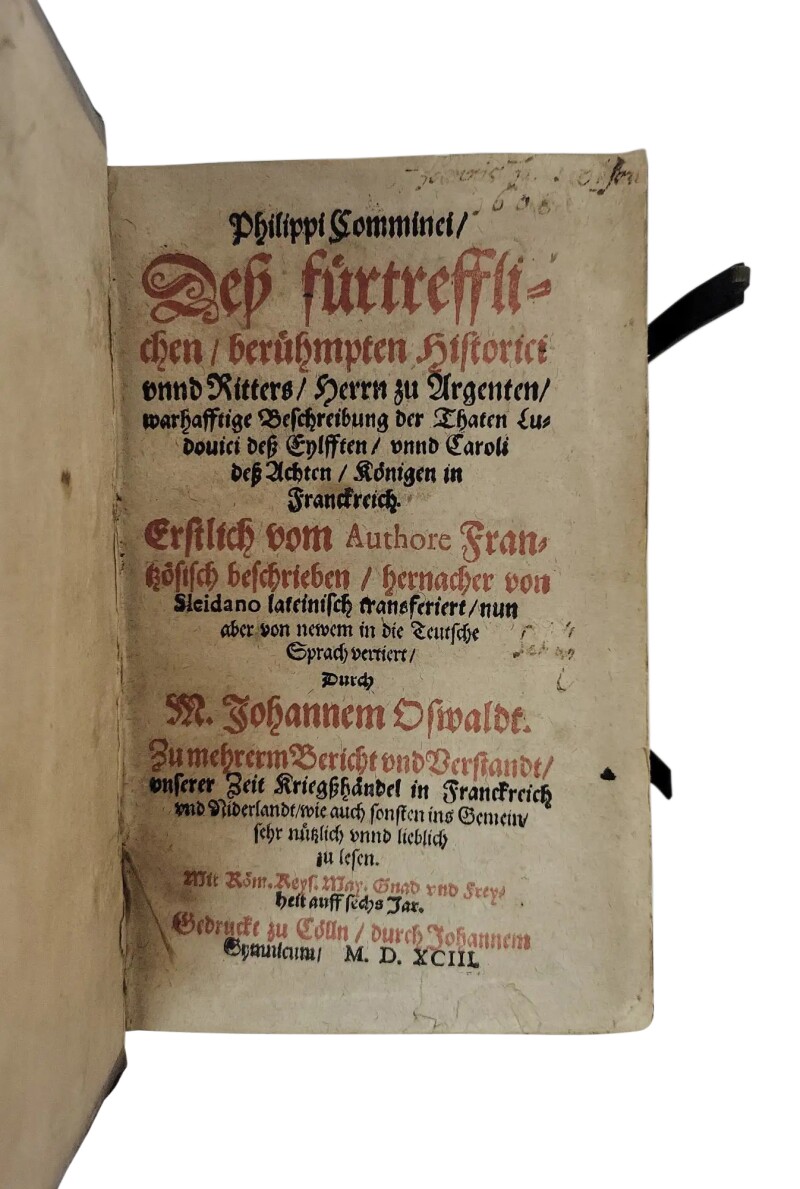 Philippi Comminei/
Deß fürtreffli-
chen / berühmpten Historici
vnnd Ritters / Herrn zu Argenten/
warhafftige Beschreibung der Thaten Lu-
douici deß Eylfften / vnnd Caroli
deß Achten / Königen in
Franckreich.
Erstlich vom Authore Fran-
tzösisch beschrieben / hernacher von
Sleidano lateinisch transferiert / nun
aber von newem in die Teutsche
Sprach vertiert /
Durch
M. Johannem Oswaldt.
Zu mehrerm Bericht vnd Verstandt/
vnserer Zeit Kriegßhändel in Franckreich
vnd Niderlandt/wie auch sonsten ins Gemein/
sehr nützlich vnnd lieblich
zu lesen.
Mit Röm. Keys. May. Gnad vnd Frey-
heit auff sechs Jar.
Gedruckt zu Cölln / durch Johannem
Gymnicum/ M. D. XCIII.